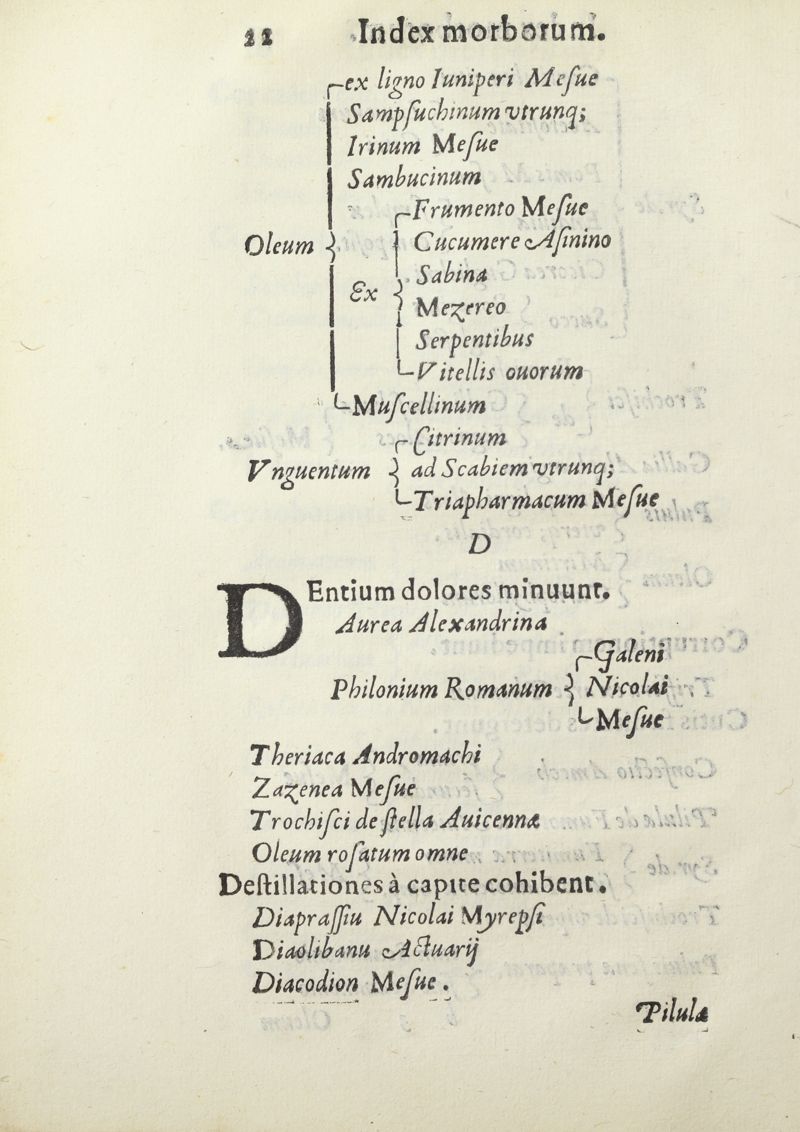 22 Index morborum.
ex ligno Iuniperi Meſue
Sampſuchinum vtrunq;
Irinum Meſue
Sambucinum
Frumento Meſue
Oleum } Cucumere Aſinino
Sabina
Ex {
Mezereo
Serpentibus
Vitellis ouorum
Muſcellinum
Citrinum
Vnguentum { ad Scabiem vtrunq;
Triapharmacum Meſue
D
DEntium dolores minuunt.
Aurea Alexandrina
Galeni
Philonium Romanum { Nicolai
Meſue
Theriaca Andromachi
Zazenea Meſue
Trochiſci de ſtella Auicennæ
Oleum roſatum omne
Deſtillationes à capite cohibent.
Diapraſſiu Nicolai Myrepſi
Diaolibanu Actuarij
Diacodion Meſue.
Pilulæ